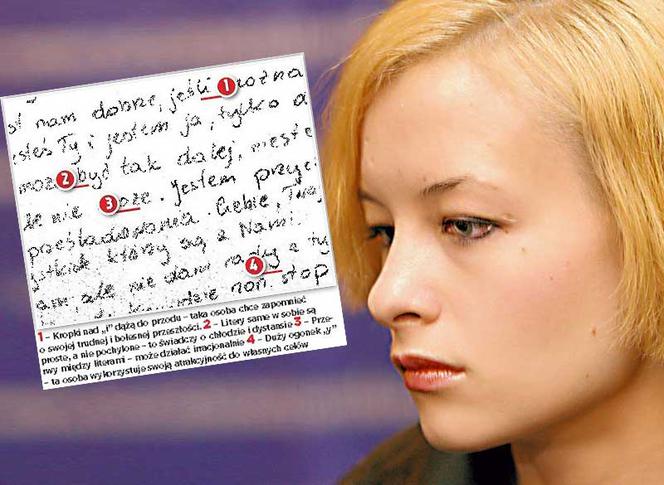 nam dobrze, jeśli 1 można
jesteś Ty i jestem ja, tylko a
może 2 być tak dalej, nieste
że nie 3 oże. Jestem przyc
prześladowania Ciebie, Twoj
którzy są z Nami.
am, ale nie dam rady 4 z ty
non stop
1 – Kropki nad „i” dążą do przodu – taka osoba chce zapomnieć
o swojej trudnej i bolesnej przeszłości. 2 – Litery same w sobie są
proste, a nie pochylone – to świadczy o chłodzie i dystansie 3 – Prze-
rwy między literami – może działać irracjonalnie 4 – Duży ogonek „y”
– ta osoba wykorzystuje swoją atrakcyjność do własnych celów